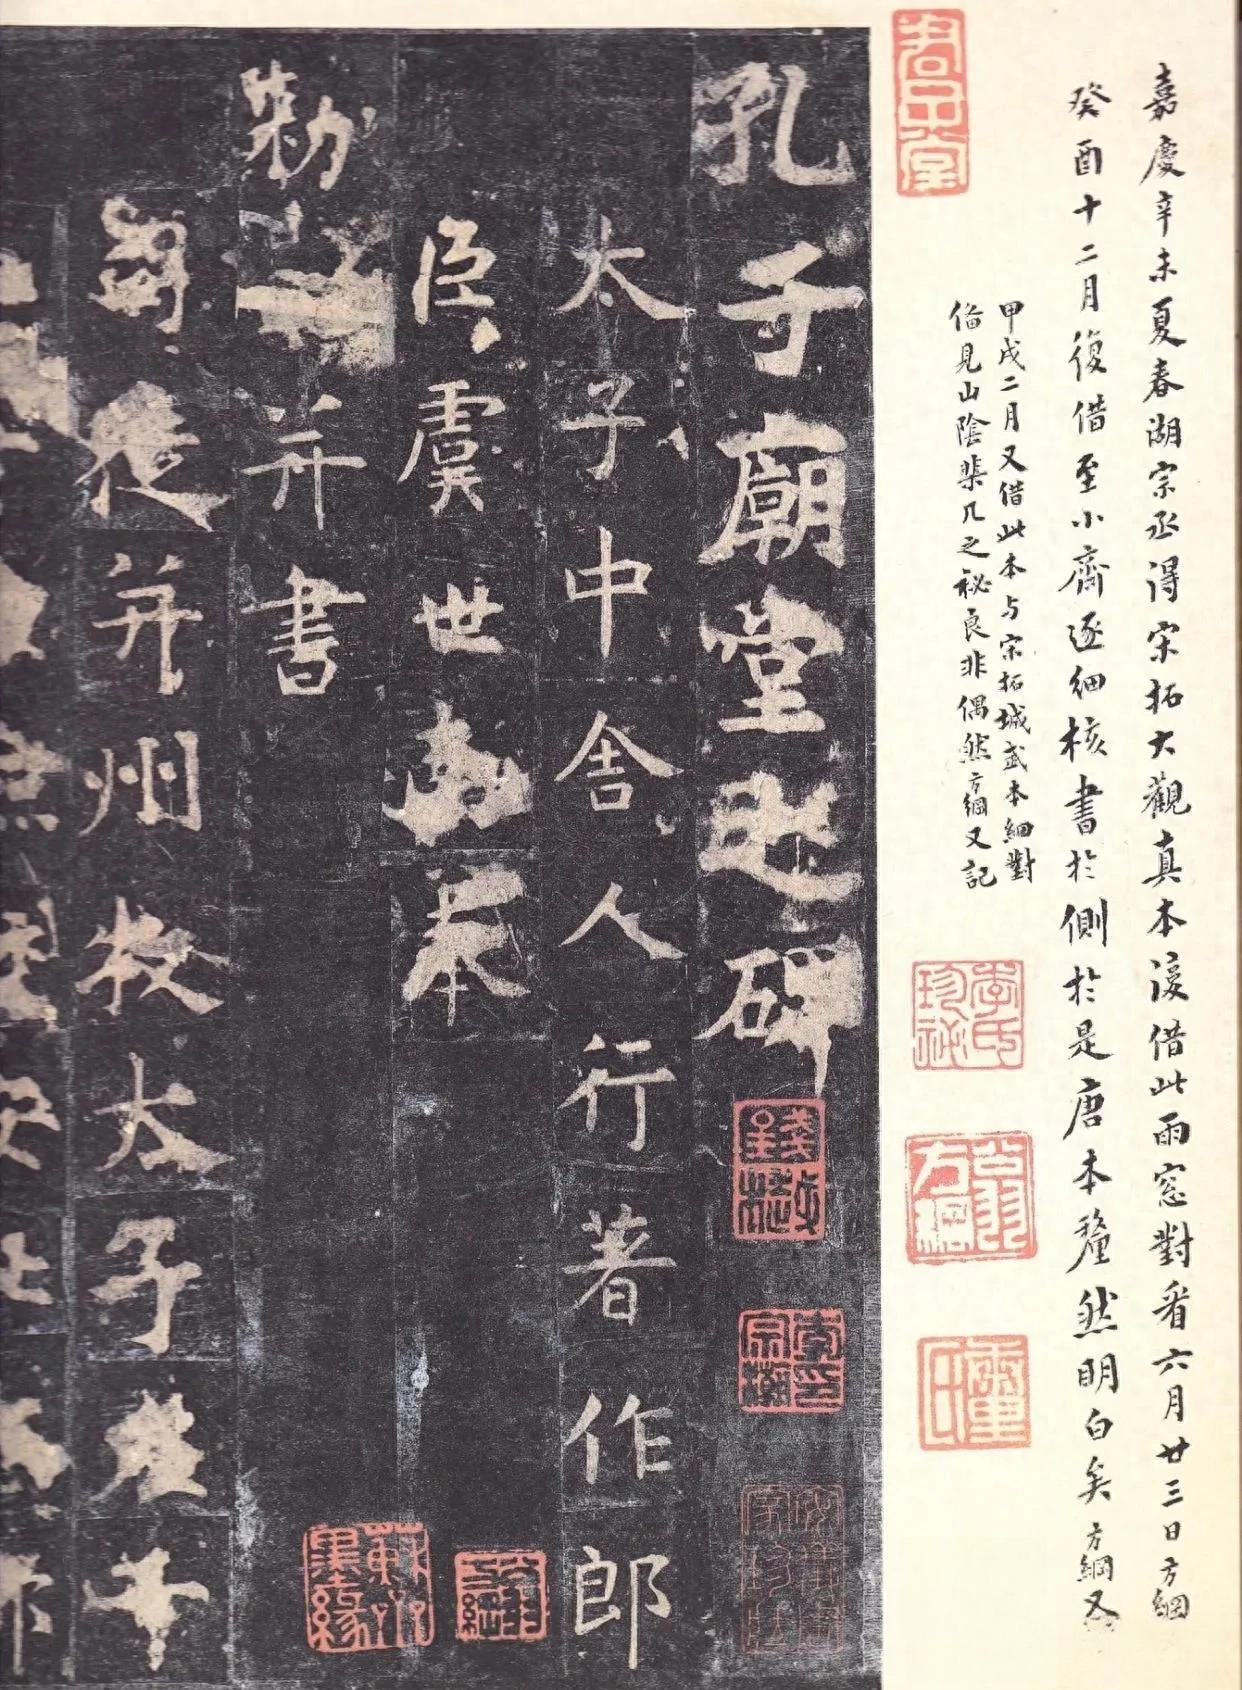 嘉慶辛未夏春湖宗丞得宋拓大觀真本後借此雨窓對看六月廿三日方綱
癸酉十二月復借至小齋逐細核書於側於是唐本釐然明白矣方綱又
甲戌二月又借此本与宋拓城武本細對
偹見山陰棐几之秘良非偶然方綱又記
李氏珍祕
翁方綱
孔子廟堂之碑
太子中舍人行著作郎
臣虞世南奉
勅
并書
司徒并州牧太子左千
李宗瀚印
蘇齋墨緣